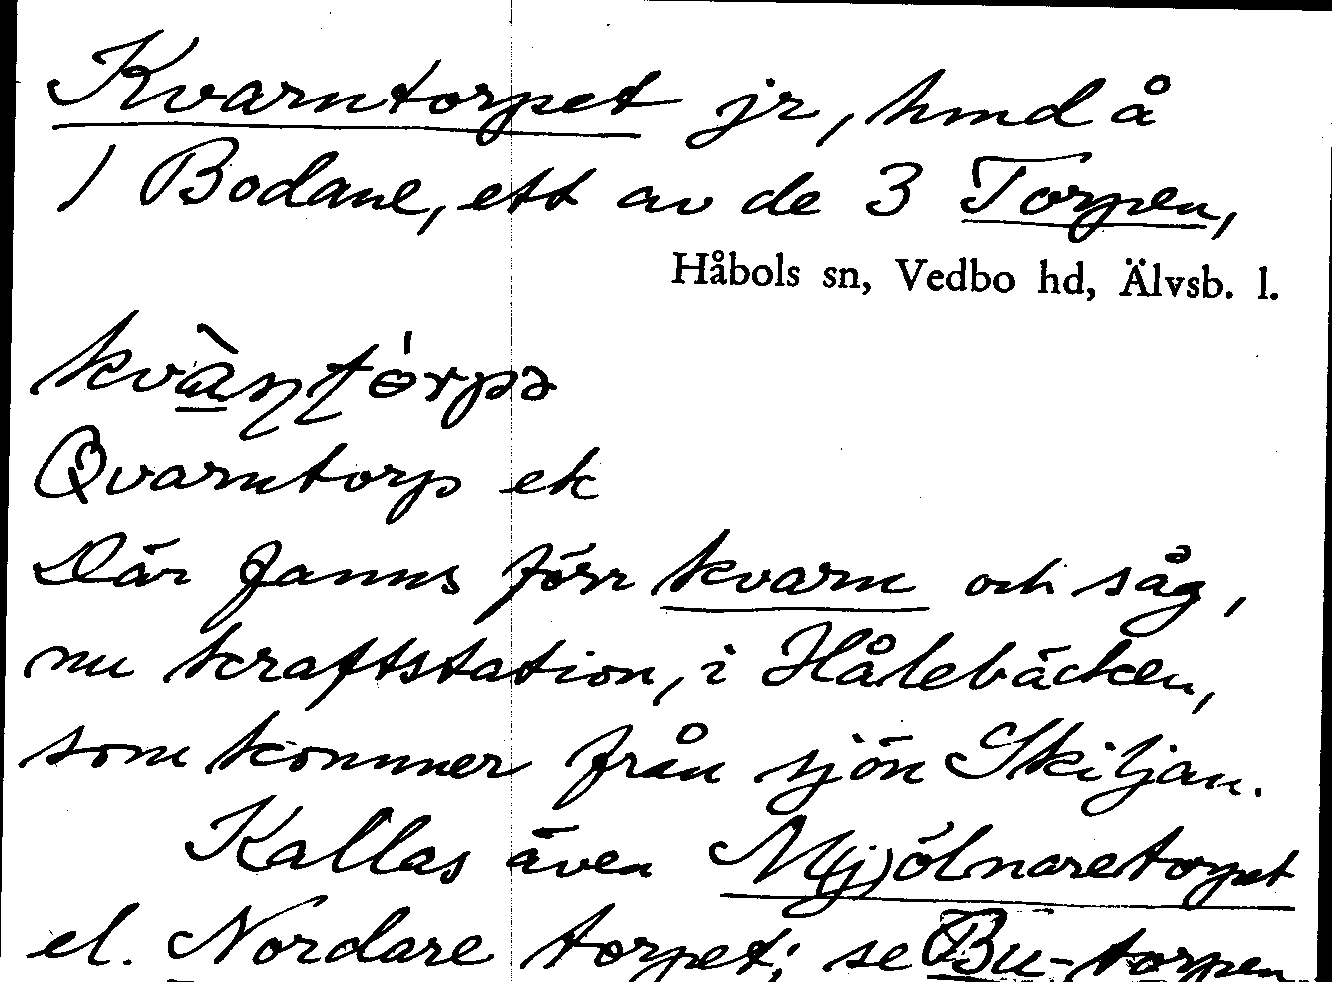 Kvarntorpet jr, hmd å
1 Bodane, ett av de 3 Torpen,
Håbols sn, Vedbo hd, Älvsb. l.
Qvarntorp ek
Där fanns förr kvarn och såg,
nu kraftstation, i Hålebäcken,
som kommer från sjön Skiljan.
Kallas även M(j)ölnaretorpet
el. Nordare torpet; se Bu-torpen